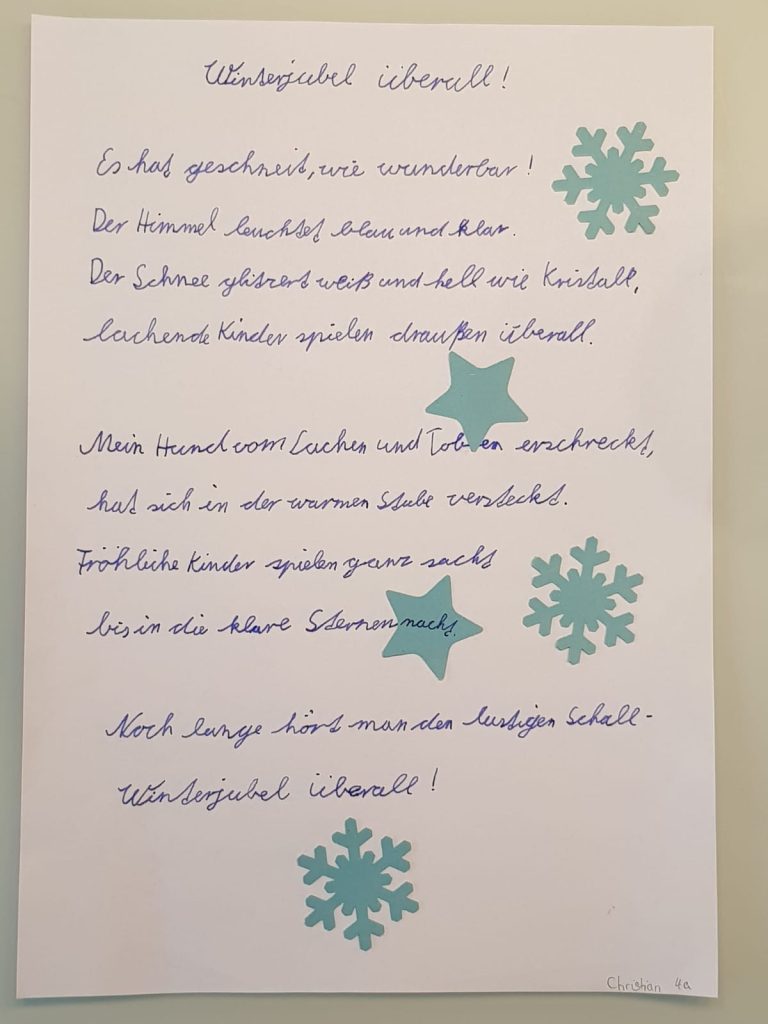 Winterjubel überall!
Es hat geschneit, wie wunderbar!
Der Himmel leuchtet blau und klar.
Der Schnee glitzert weiß und hell wie Kristall,
lachende Kinder spielen draußen überall.
Mein Hund vom Lachen und Toben erschreckt,
hat sich in der warmen Stube versteckt.
Fröhliche Kinder spielen ganz sacht
bis in die klare Sternennacht.
Noch lange hört man den lustigen Schall-
Winterjubel überall!
Christian 4a